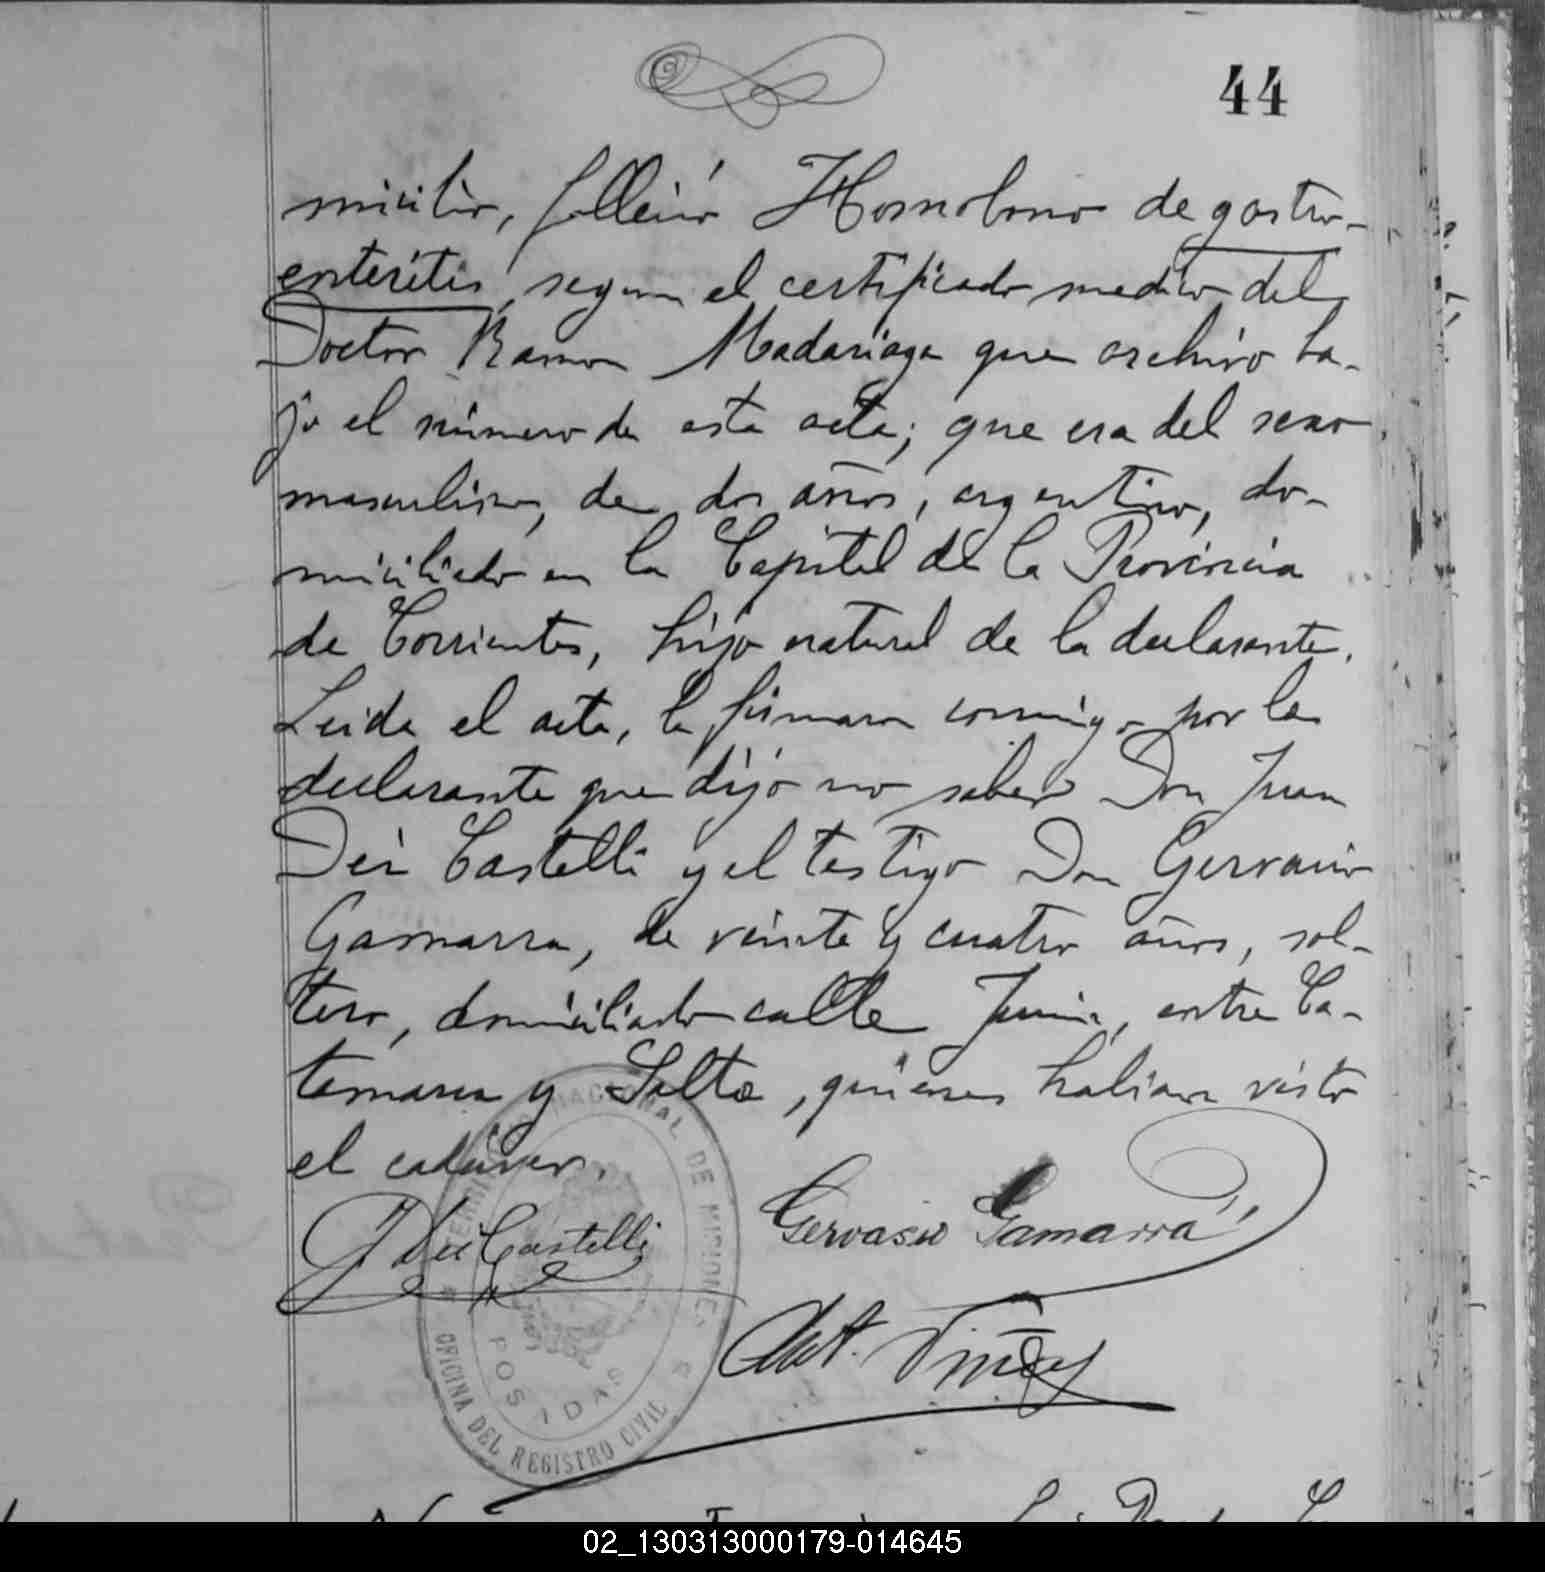 44
micilio, falleció Homobono de gastro-
enteritis, segun el certificado medico del
Doctor Ramon Madariaga que archivo ba-
jo el número de esta acta; que era del sexo
masculino, de dos años, argentino, do-
miciliado en la Capital de la Provincia
de Corrientes, hijo natural de la declarante.
Leida el acta, la firmaron conmigo por la
declarante que dijo no saber Don Juan
Dei Castelli y el testigo Don Gervasio
Gamarra, de veinte y cuatro años, sol-
tero, domiciliado calle Junin, entre Ca-
tamarca y Salta, quienes habian visto
el cadáver.
J Dei Castelli
Gervasio Gamarra
Ant.
NACIONAL DE MISIONES
POSADAS
OFICINA DEL REGISTRO CIVIL
02_130313000179-014645